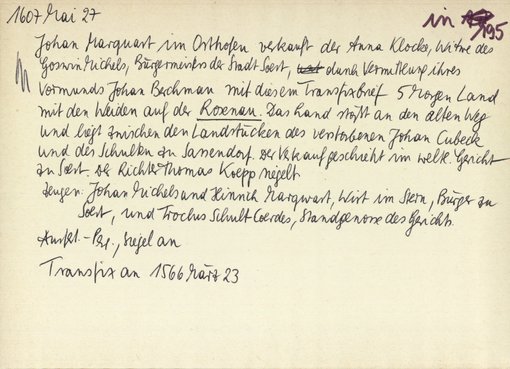 1607 Mai 27
in 195
Johan Marquart im Osthofen verkauft der Anna Klocke, Witwe des
Goswin Michels, Bürgermeisters der Stadt Soest, durch Vermittlung ihres
Vormunds Johan Berchman mit diesem Transfixbrief 5 Morgen Land
mit den Weiden auf der Rosenau. Das Land stößt an den alten Weg
und liegt zwischen den Landstücken des verstorbenen Johan Cubeck
und des Schulten zu Sassendorf. Der Verkauf geschieht im weltl. Gericht
zu Soest. Der Richter Thomas Koepp siegelt.
Zeugen: Johan Michels und Hinrich Marquart, Wirt im Stern, Bürger zu
Soest, und Trochus Schult Coerdes, Standgenosse des Gerichts.
Ausf.- Pg., Siegel an
Transfix an 1566 März 23